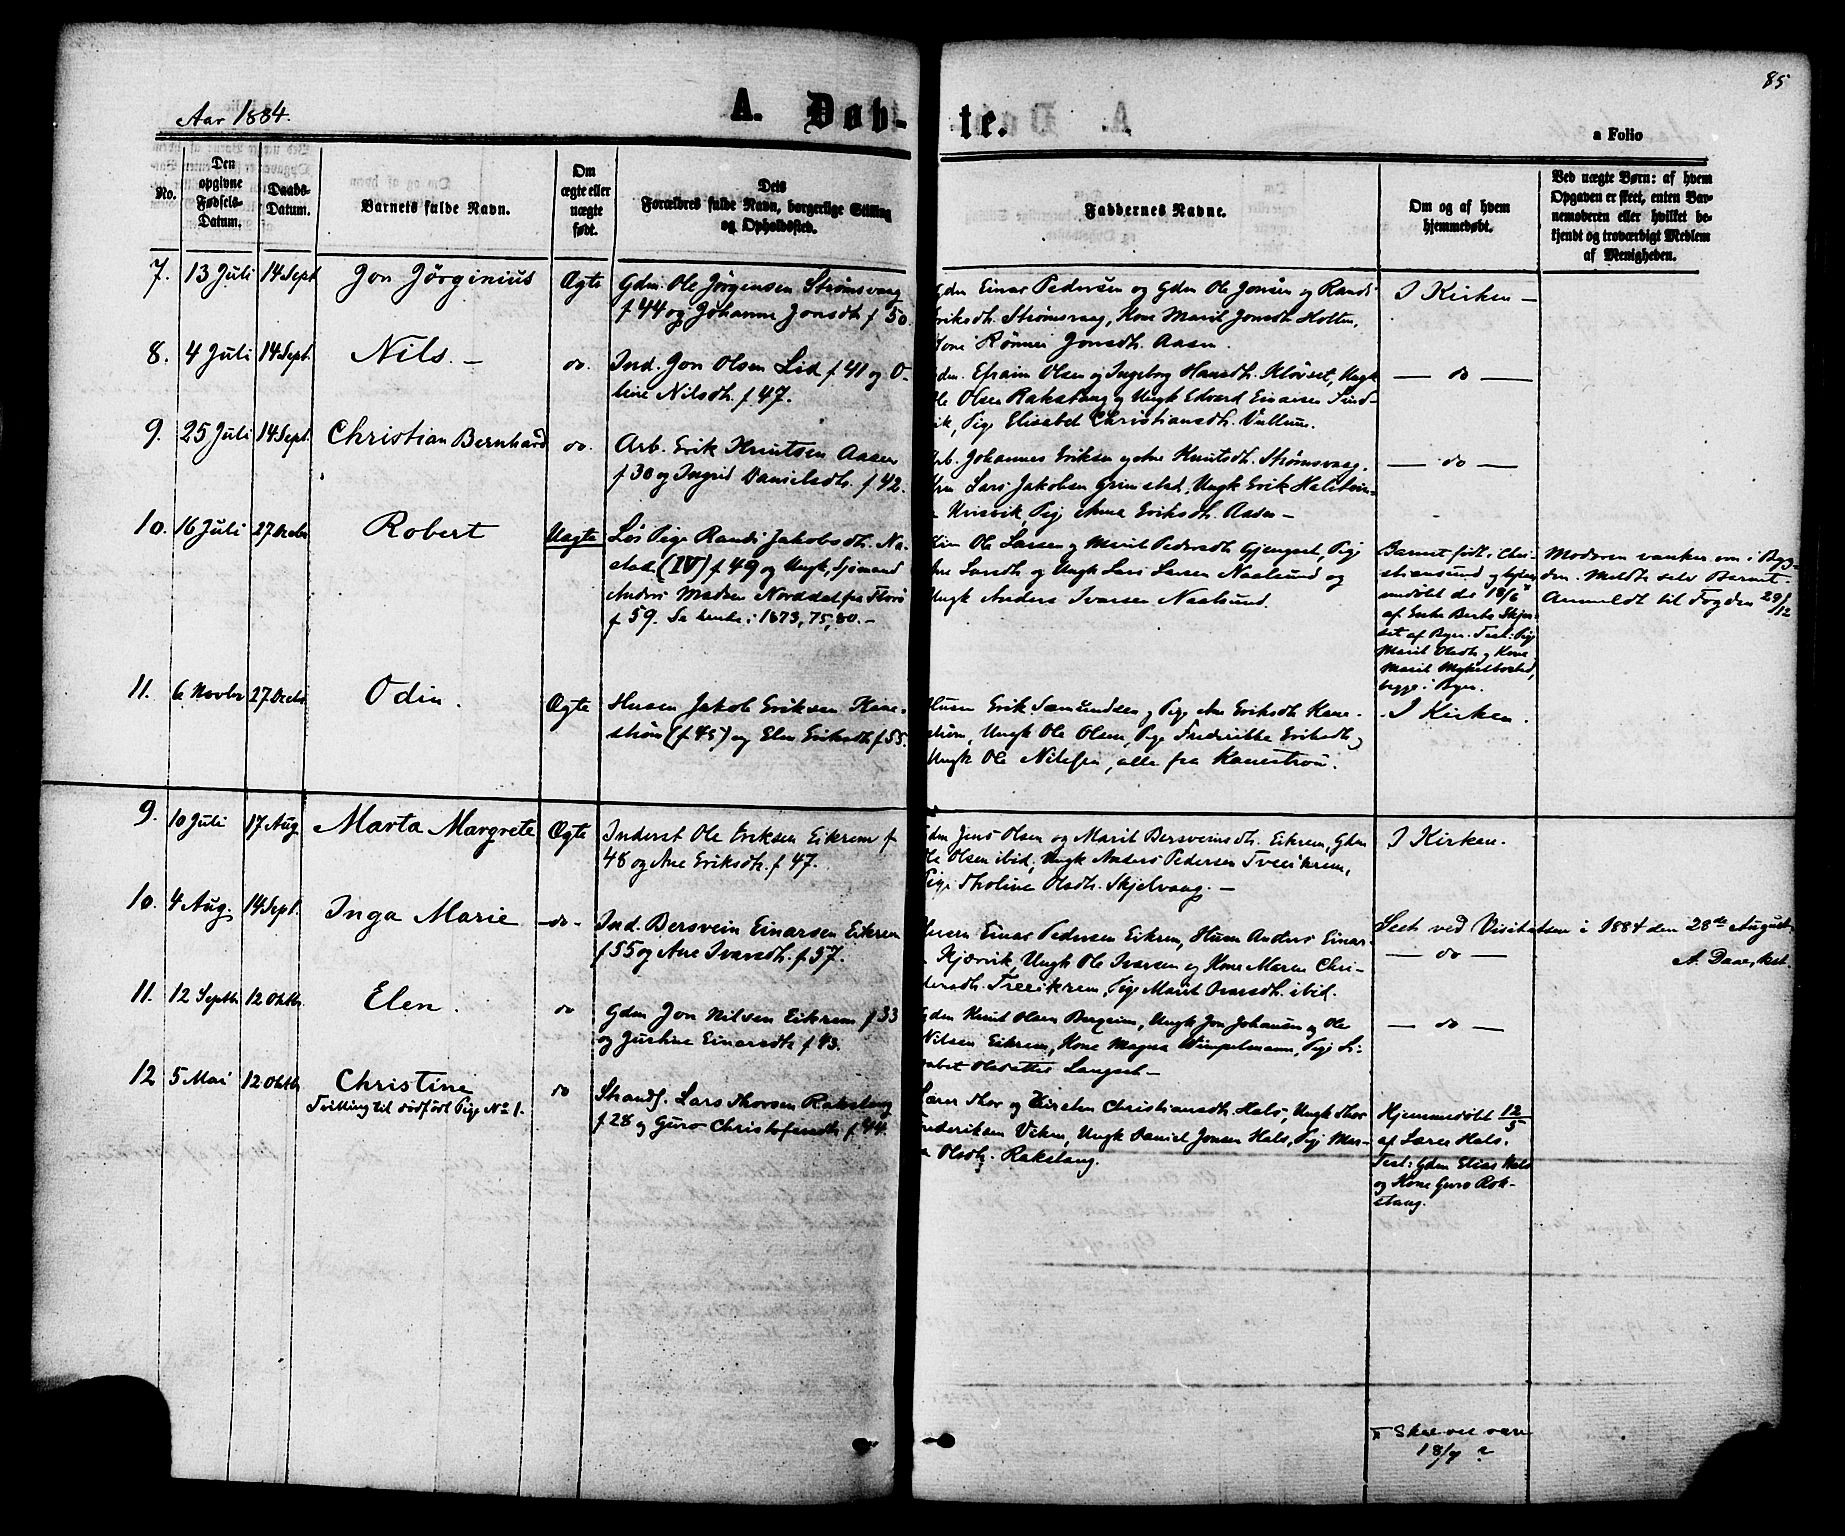 85
Aar 1884.
A. Døb-
te.
a Folio
No.
Den
opgivne
Fødsels-
Datum.
Daabs-
Datum.
Barnets fulde Navn.
Om
ægte eller
uægte
født.
Dets
Forældres fulde Navn, borgerlige Stilling
og Opholdssted.
Faddernes Navne.
Om og af hvem
hjemmedøbt.
Ved uægte Børn: af hvem
Opgaven er skeet, enten Bar-
nemoderen eller hvilket be-
kjendt og troværdigt Medlem
af Menigheden.
7. 13 Juli 14 Sept Jon Jörginius Ægte
Gdm. Ole Jörgensen Strømsvaag
f 44 og Johanne Jonsdh. f 50.
Gdm Einar Pedersen og Gdm Ole Jonsen og Randi
Eriksdh. Strømsvaag, Kone Marit Jonsdh. Holten,
Kone Rønnei Jonsdh. Aasen.
I Kirken —
8. 4 Juli 14 Sept. Nils. — do.
Ind. Jon Olsen Lid f 41 og O-
line Nilsdh. f 47.
Gdm. Efraim Olsen og Ingeborg Hansdh. Kløvset, Ungk
Ole Olsen Rakstang og Ungk Edvard Einarsen Sund-
vik, Pige Elisabet Christiansdh. Vullum.
— do —
9. 25 Juli 14 Sept. Christian Bernhard do.
Arb. Erik Knutsen Aasen
f 30 og Ingrid Danielsdh. f 42.
Arb. Johannes Eriksen og Ane Knutsdh. Strømsvaag.
Lars Jakobsen Grimstad, Ungk Erik Halstein-
Pige Anne Eriksdh. Aasen —
— do —
10. 16 Juli 27 Decbr Robert Uægte
Løs Pige Randi Jakobsdh. Na-
stad (IV) f 49 og Ungk, Sjömand
Anders Madsen Norddal fra Florö
f 59. Se herke i 1873, 75, 80. —
Ole Larsen og Marit Pedersdh Gjengset, Pige
Ane Larsdh og Ungk Lars Larsen Naalsund og
Ungk Anders Ivarsen Naalsund.
Barnet født i Chri-
stiansund og hjem-
medöbt der 18/6
af Enke Berte Skjer-
set af Byen. Test: Pige
Marit Olsdh og Kone
Marit Myklebostad,
begge i Byen.
Moderen vanker om i Byg-
den. Meldte selv Barnet.
Anmeldt til Fogden 29/12
11. 6 Novbr 27 Decbr Odin. Ægte
Husm Jakob Eriksen Kane-
ström (f 45) og Elen Eriksdh f 55.
Husm Erik Samundsen og Pige Ane Eriksdh Kane-
ström, Ungk Ole Olsen, Pige Fredrikke Eriksdh og
Ungk Ole Nilsen, alle fra Kaneström.
I Kirken.
9. 10 Juli 17 Aug. Marta Margrete Ægte
Inderst Ole Eriksen Eikrem f
48 og Ane Eriksdh. f 47.
Gdm Jens Olsen og Marit Bersveinsdh. Eikrem, Gdm
Ole Olsen ibid, Ungk Anders Pedersen Tveeikrem,
Pige Tholine Olsdh. Skjelvaag. —
I Kirken.
10. 4 Aug. 14 Sept. Inga Marie — do —
Ind. Bersvein Einarsen Eikrem
f. 55 og Ane Ivarsdh. f. 57.
Husm Einar Pedersen Eikrem, Husm Anders Einar-
Kjærvik, Ungk Ole Ivarsen og Kone Maren Chri-
Tveeikrem, Pige Marit Ivarsdh. ibid.
Seet ved Visitatsen i 1884 den 28de August
— do —
A. Daae,
11. 12 Septbr 12 Oktbr. Elen. do
Gdm Jon Nilsen Eikrem f 33
og Gurline Einarsdh f 43.
Gdm Knut Olsen Bergeim, Ungk Jon Johansen og Ole
Nilsen Eikrem, Kone Magna Wimpelmann, Pige Li-
sabet Olsdatter Langset —
— do —
12 5 Mai 12 Oktbr Christine do
Tvilling til dödfödt Pige No 1.
Strands. Lars Thorsen Rakstang
f. 28 og Guro Christofersdh. f. 44.
Lærer Thor og Kirsten Christiansdh. Hals, Ungk Thor
Frederiksen Viken, Ungk Daniel Jonsen Hals, Pige Mar-
Olsdh. Rakstang.
Hjemmedöbt 12/5
af Lærer Hals.
Test: Gdm Elias Hals
og Kone Guro Rak-
stang.
Skal vel være
18/7 ?